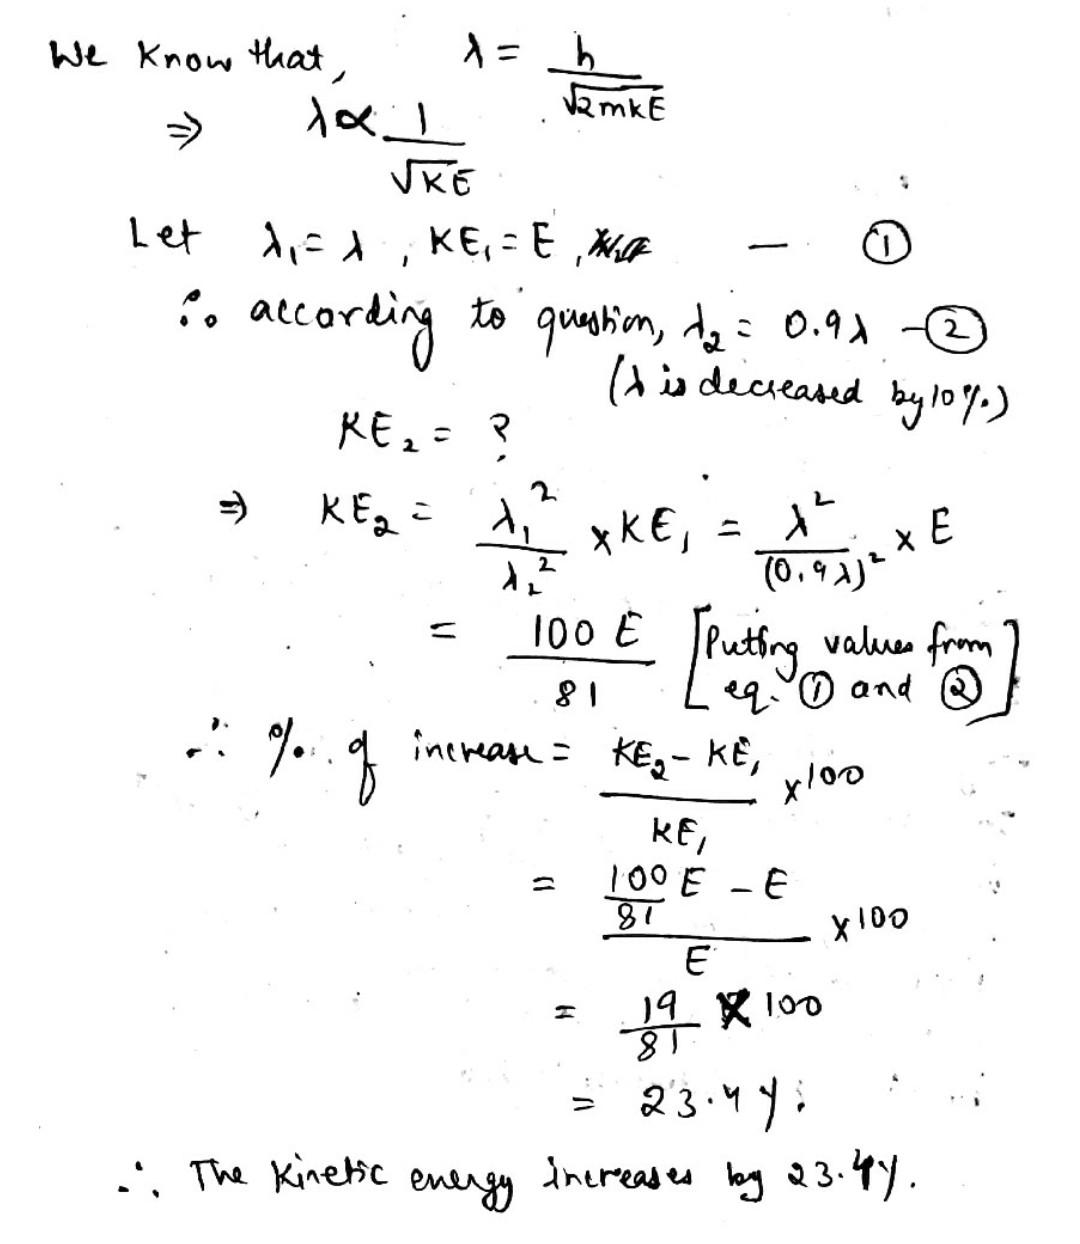 We know that, λ = h / √2mKE
⇒ λ ∝ 1 / √KE
Let λ₁ = λ , KE₁ = E , — ①
∴ according to question, λ₂ = 0.9λ — ②
(λ is decreased by 10%.)
KE₂ = ?
⇒ KE₂ = λ₁² / λ₂² × KE₁ = λ² / (0.9λ)² × E
= 100 E / 81 [Putting values from eq. ① and ②]
∴ %. of increase = KE₂ - KE₁ / KE₁ × 100
= 100/81 E - E / E × 100
= 19/81 × 100
= 23.4 %.
∴ The Kinetic energy increases by 23.4%.